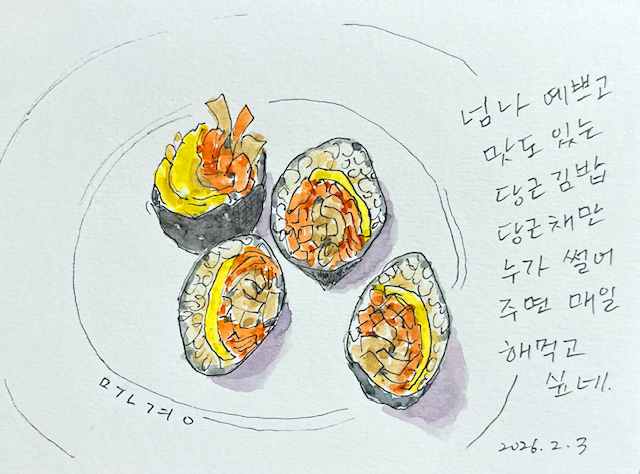 넘나 예쁘고
맛도 있는
당근김밥
당근채만
누가 썰어
주면 매일
해먹고
싶네.
ㅁㄱㄴㄱㅕㅇ
2026. 2. 3